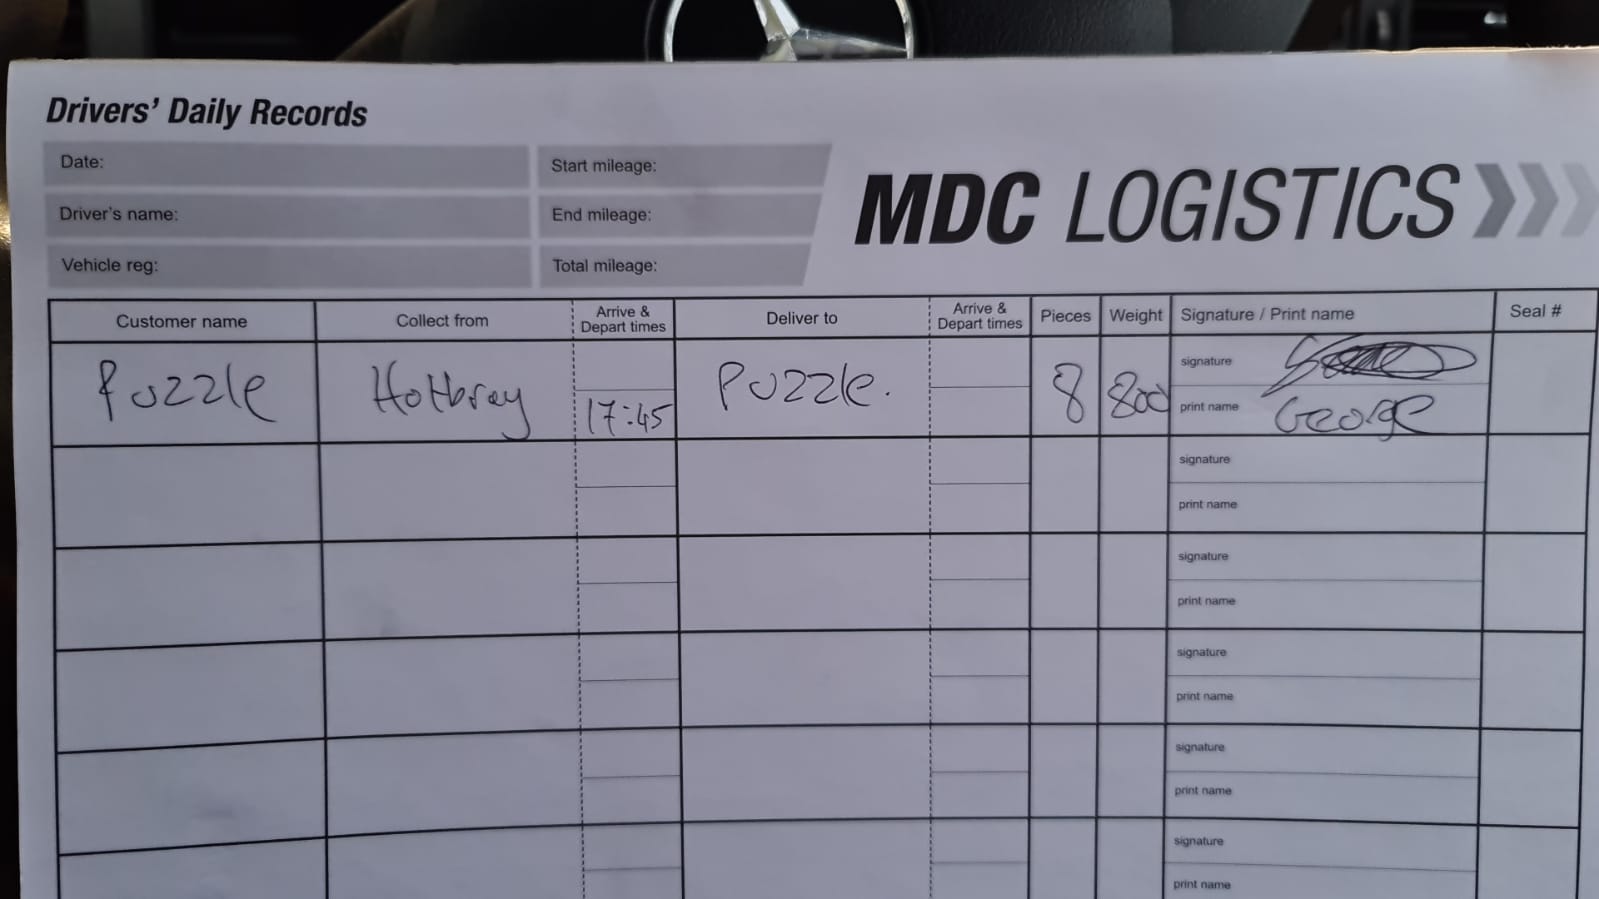 Drivers' Daily Records
Date:
Start mileage:
Driver's name:
End mileage:
Vehicle reg:
Total mileage:
MDC LOGISTICS
Customer name Collect from Arrive & Depart times Deliver to Arrive & Depart times Pieces Weight Signature / Print name Seal #
Puzzle 17:45 Puzzle. 8 800 signature
print name George
signature
print name
signature
print name
signature
print name
signature
print name
signature
print name